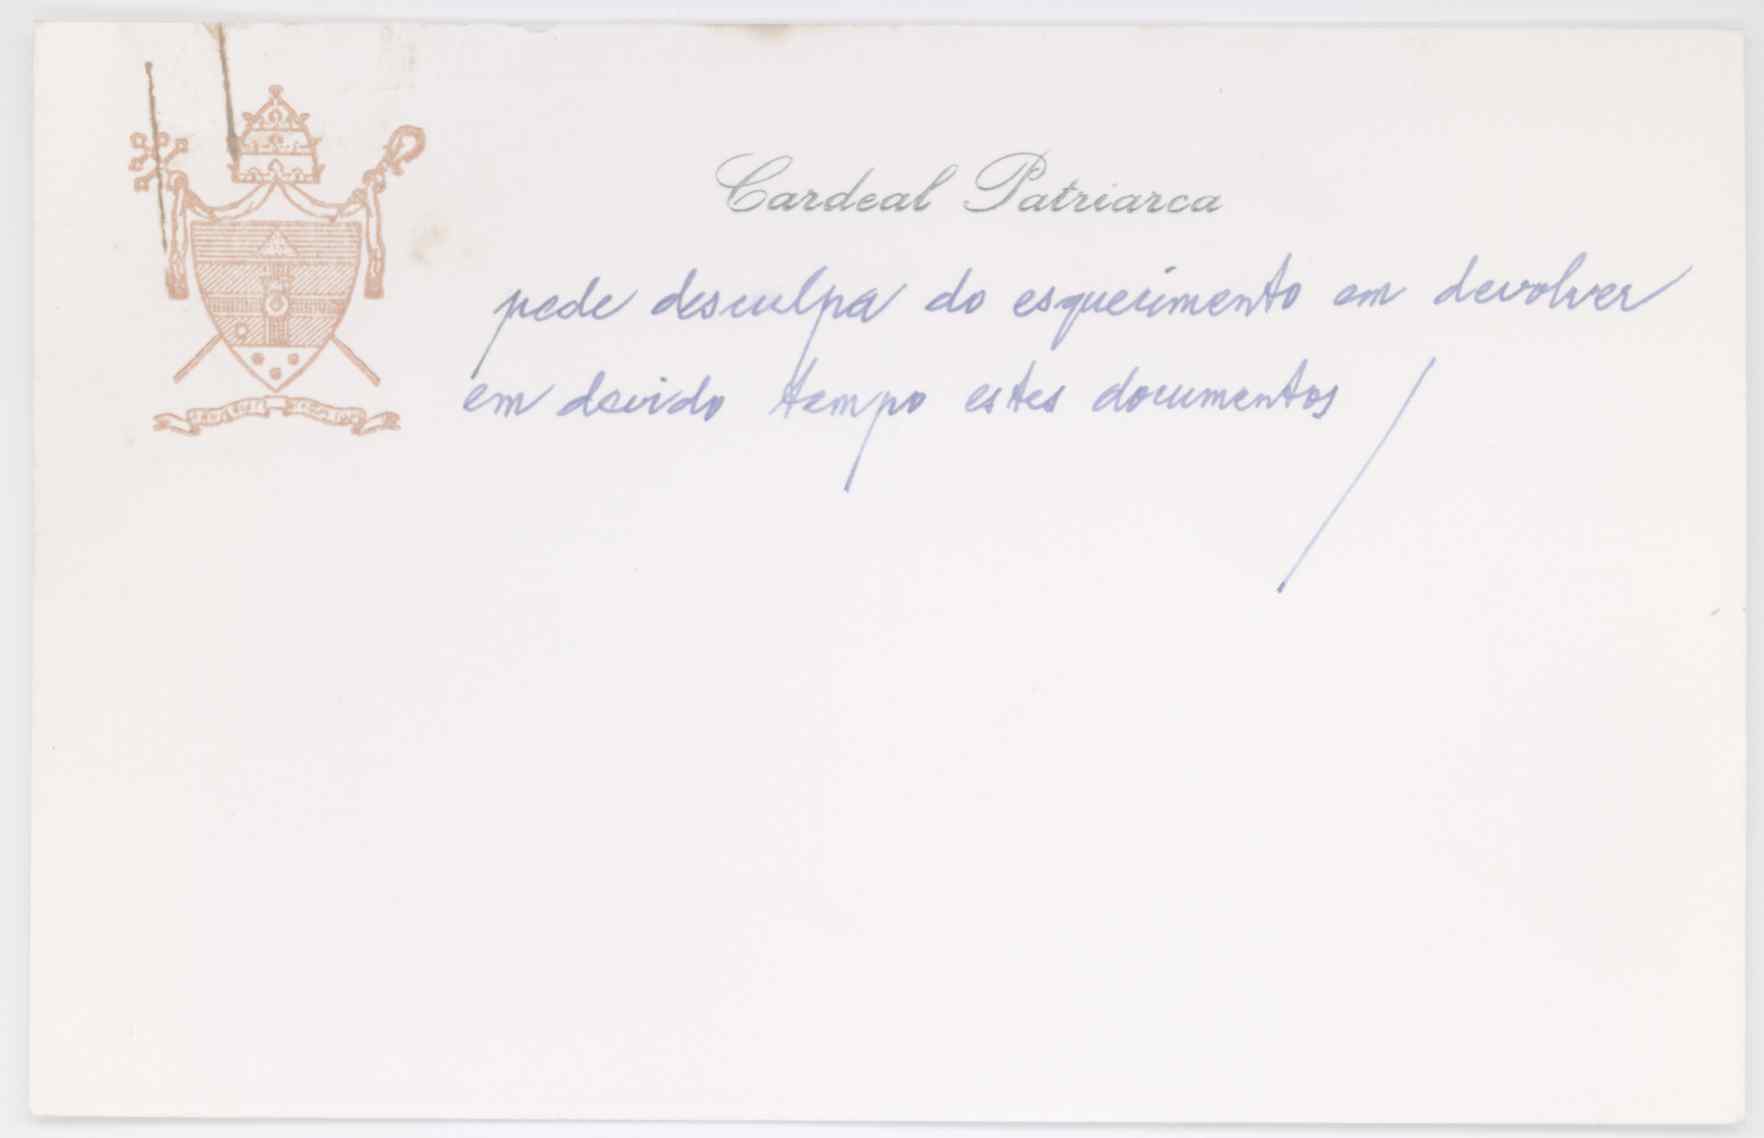 Cardeal Patriarca
pede desculpa do esquecimento em devolver
em devido tempo estes documentos